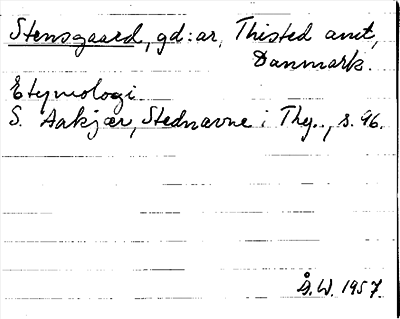 Stensgaard, gd:ar, Thisted amt,
Danmark.
Etymologi.
S. Aakjær, Stednavne i Thy., s. 96.
Å.W. 1957.